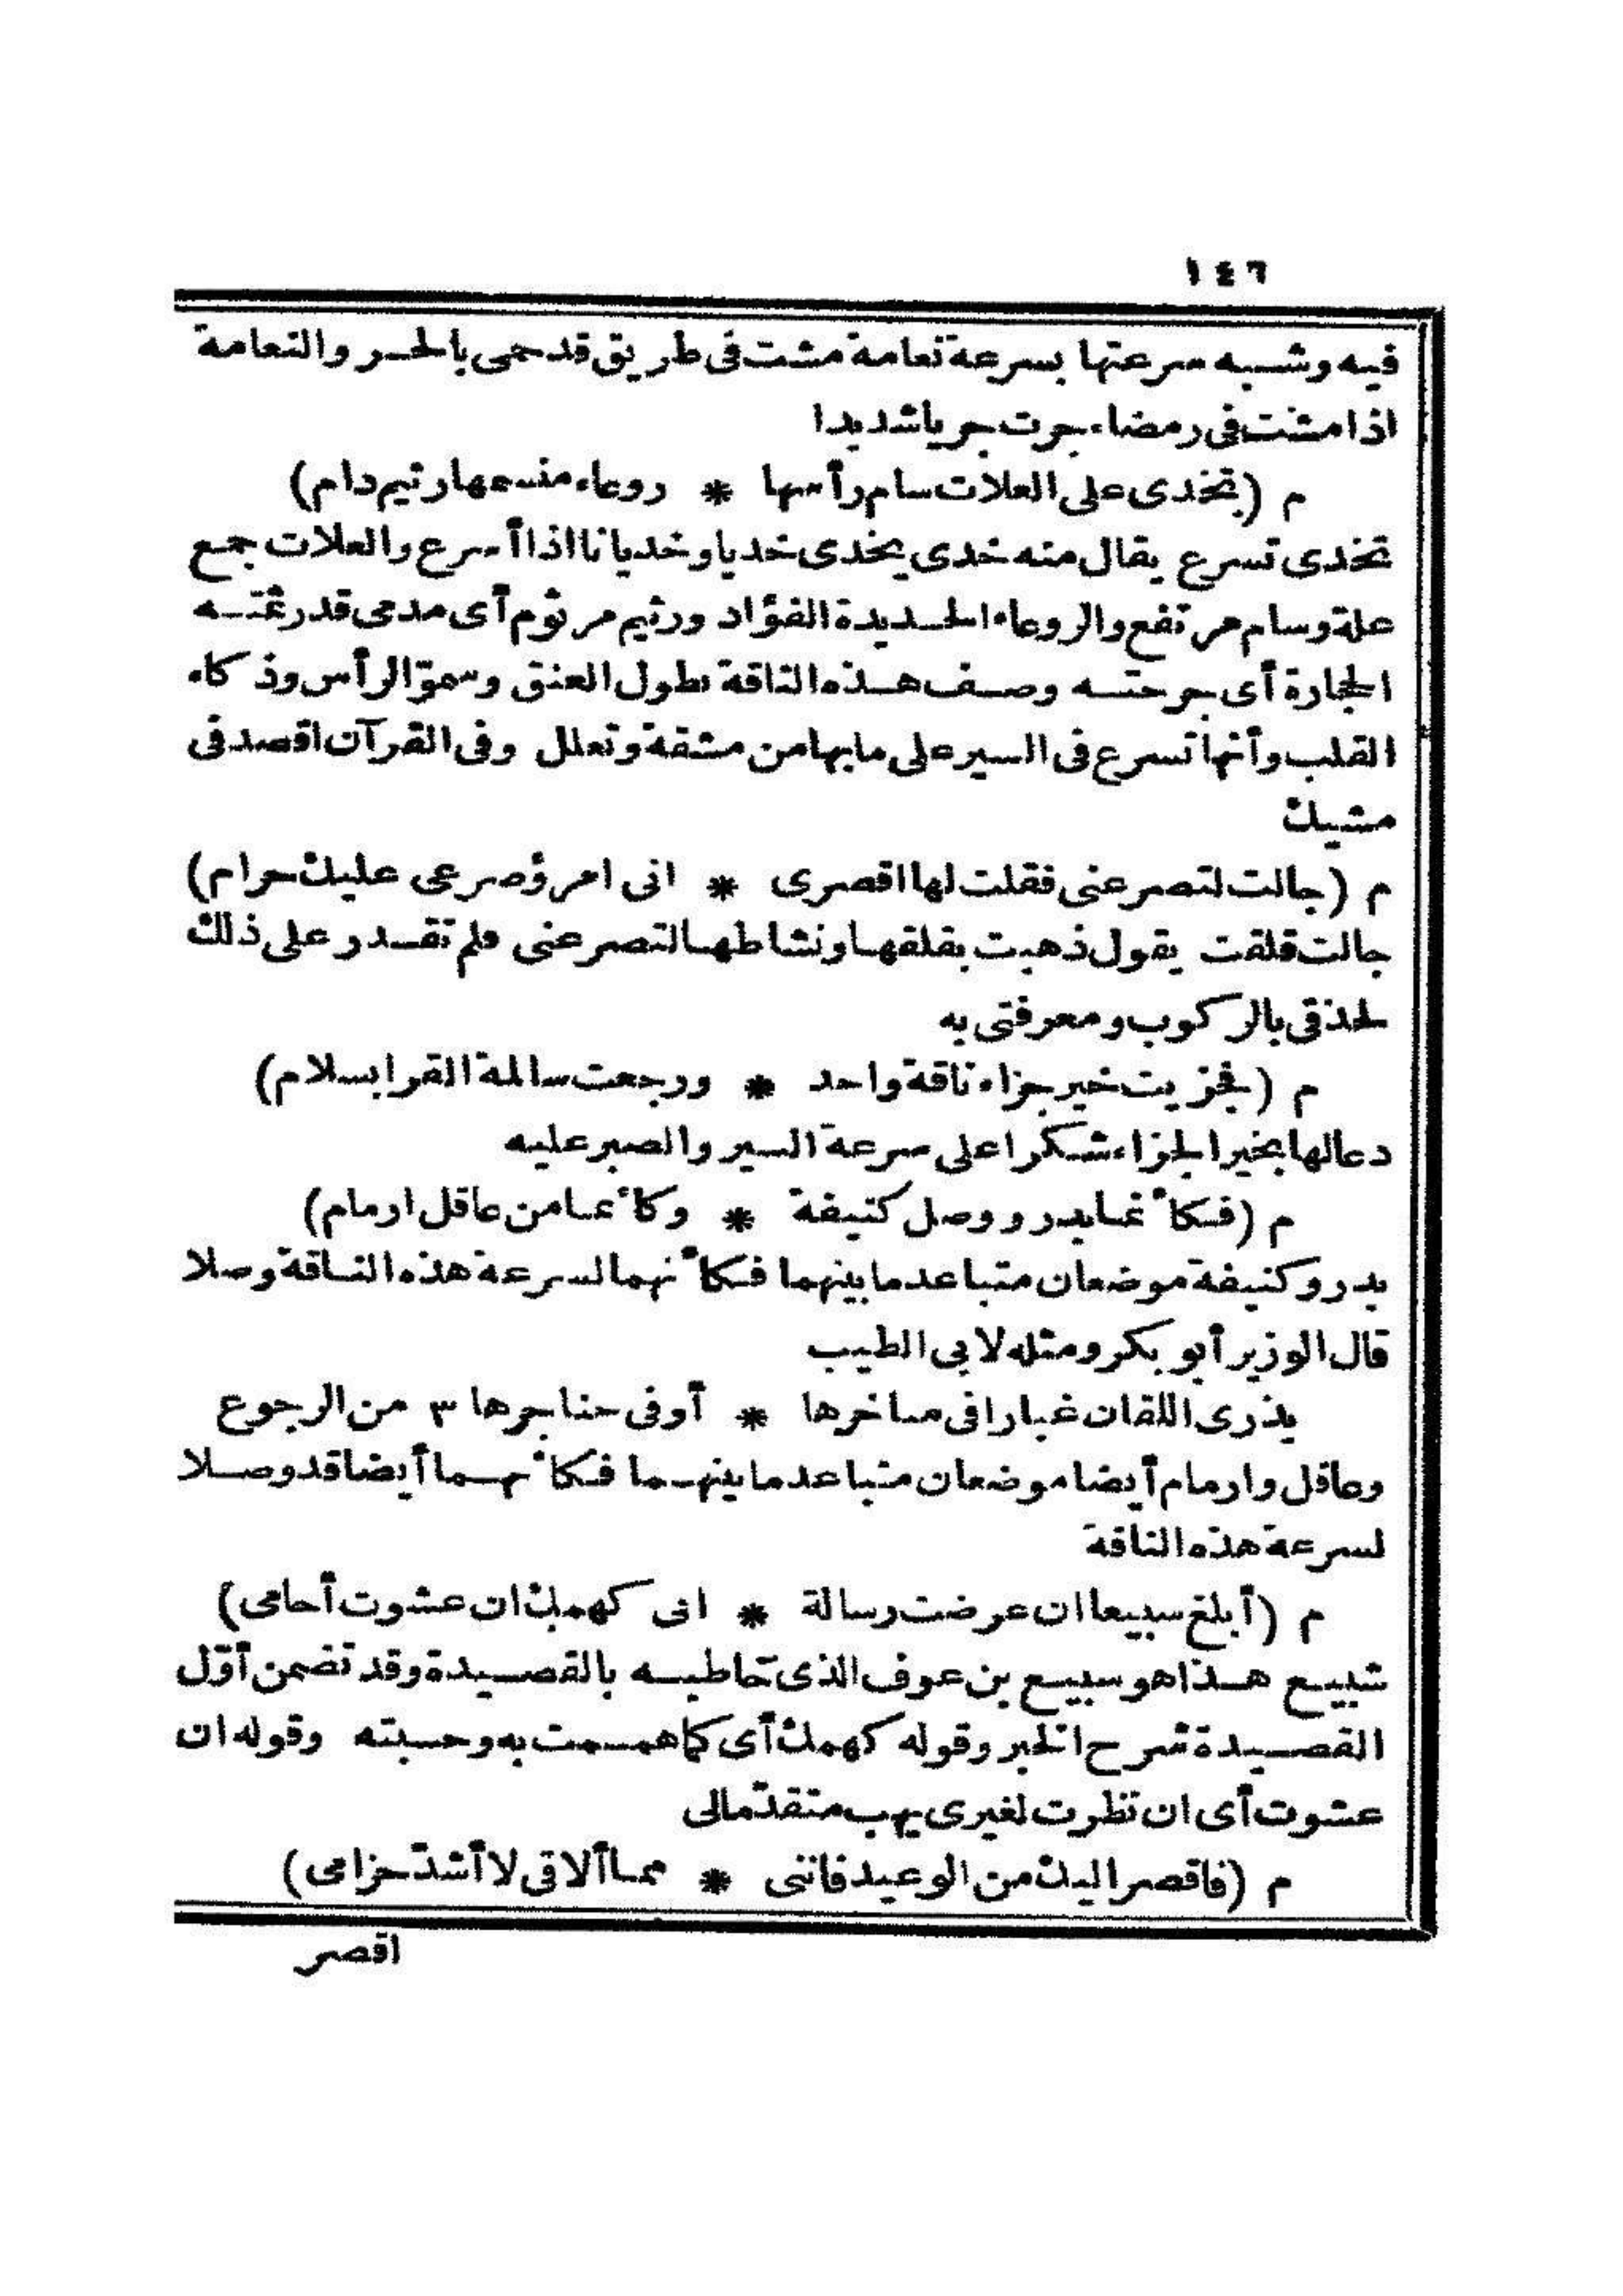 ١٤٦
فيه وشبه سرعتها بسرعة نعامة مشت فى طريق قد حمى بالحر والنعامة
اذا مشت فى رمضاء جرت جريا شديدا
م (تخدى على العلات سام رأسها * روعاء منسمها رثيم دام)
تخدى تسرع يقال منه خدى يخدى خديا وخديانا اذا أسرع والعلات جمع
علة وسام مرتفع والروعاء الحديدة الفؤاد ورثيم مرثوم أى مدمى قد رثمته
الحجارة أى جرحته وصف هذه الناقة بطول العنق وسموّ الرأس وذكاء
القلب وأنها تسرع فى السير على مابها من مشقة وتعلل وفى القرآن اقصد فى
مشيك
م (جالت لتصرعنى فقلت لها اقصرى * انى امرؤ صرعى عليك حرام)
جالت قلقت يقول ذهبت بقلقها ونشاطها لتصرعنى فلم تقدر على ذلك
لحذقى بالركوب ومعرفتى به
م (فجزيت خير جزاء ناقة واحد * ورجعت سالمة القرا بسلام)
دعا لها بخير الجزاء شكرا على سرعة السير والصبر عليه
م (فكأنما بدر وصل كتيفة * وكأنما من عاقل ارمام)
بدر وكتيفة موضعان متباعد مابينهما فكأنهما لسرعة هذه الناقة وصلا
قال الوزير أبو بكر ومثله لابى الطيب
يذرى اللقان غبارا فى مناخرها * أو فى حناجرها ٣ من الرجوع
وعاقل وارمام أيضا موضعان متباعد مابينهما فكأنهما أيضا قد وصلا
لسرعة هذه الناقة
م (أبلغ سبيعا ان عرضت رسالة * انى كهمك ان عشوت أمامى)
شبيع هذا هو سبيع بن عوف الذى خاطبه بالقصيدة وقد تضمن أوّل
القصيدة شرح الخبر وقوله كهمك أى كما هممت به وحسبته وقوله ان
عشوت أى ان نظرت لغيرى يهب متقدّمالى
م (فاقصر اليك من الوعيد فاننى * مما ألاقى لا أشدّ حزامى)
اقصر